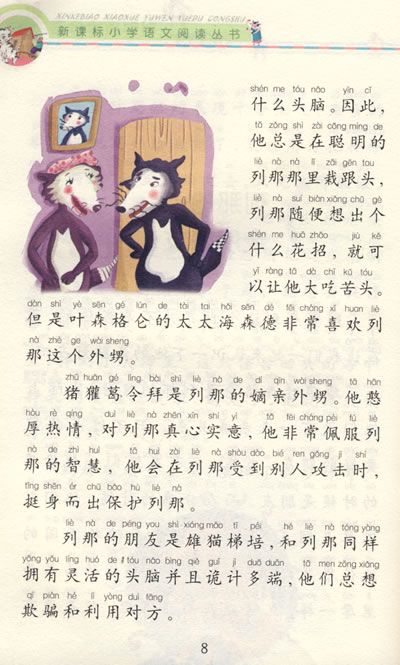 XINKEBIAO XIAOXUE YUWEN YUEDU CONGSHU
新课标小学语文阅读丛书
shén me tóu nǎo yīn cǐ
什么头脑。因此,
tā zǒng shì zài cōng míng de
他总是在聪明的
liè nà nà lǐ zāi gēn tou
列那那里栽跟头,
liè nà suí biàn xiǎng chū gè
列那随便想出个
shén me huā zhāo jiù kě
什么花招,就可
yǐ ràng tā dà chī kǔ tóu
以让他大吃苦头。
dàn shì yè sēn gé lún de tài tai hǎi sēn dé fēi cháng xǐ huan liè
但是叶森格仑的太太海森德非常喜欢列
nà zhè ge wài sheng
那这个外甥。
zhū huān gé lìng bài shì liè nà de dí qīn wài sheng tā hān
猪獾葛令拜是列那的嫡亲外甥。他憨
hòu rè qíng duì liè nà zhēn xīn shí yì tā fēi cháng pèi fú liè
厚热情,对列那真心实意,他非常佩服列
nà de zhì huì tā huì zài liè nà shòu dào bié ren gōng jī shí
那的智慧,他会在列那受到别人攻击时,
tǐng shēn ér chū bǎo hù liè nà
挺身而出保护列那。
liè nà de péng you shì xióng māo tī péi hé liè nà tóng yàng
列那的朋友是雄猫梯培,和列那同样
yōng yǒu líng huó de tóu nǎo bìng qiě guǐ jì duō duān tā men zǒng xiǎng
拥有灵活的头脑并且诡计多端,他们总想
qī piàn hé lì yòng duì fāng
欺骗和利用对方。
8